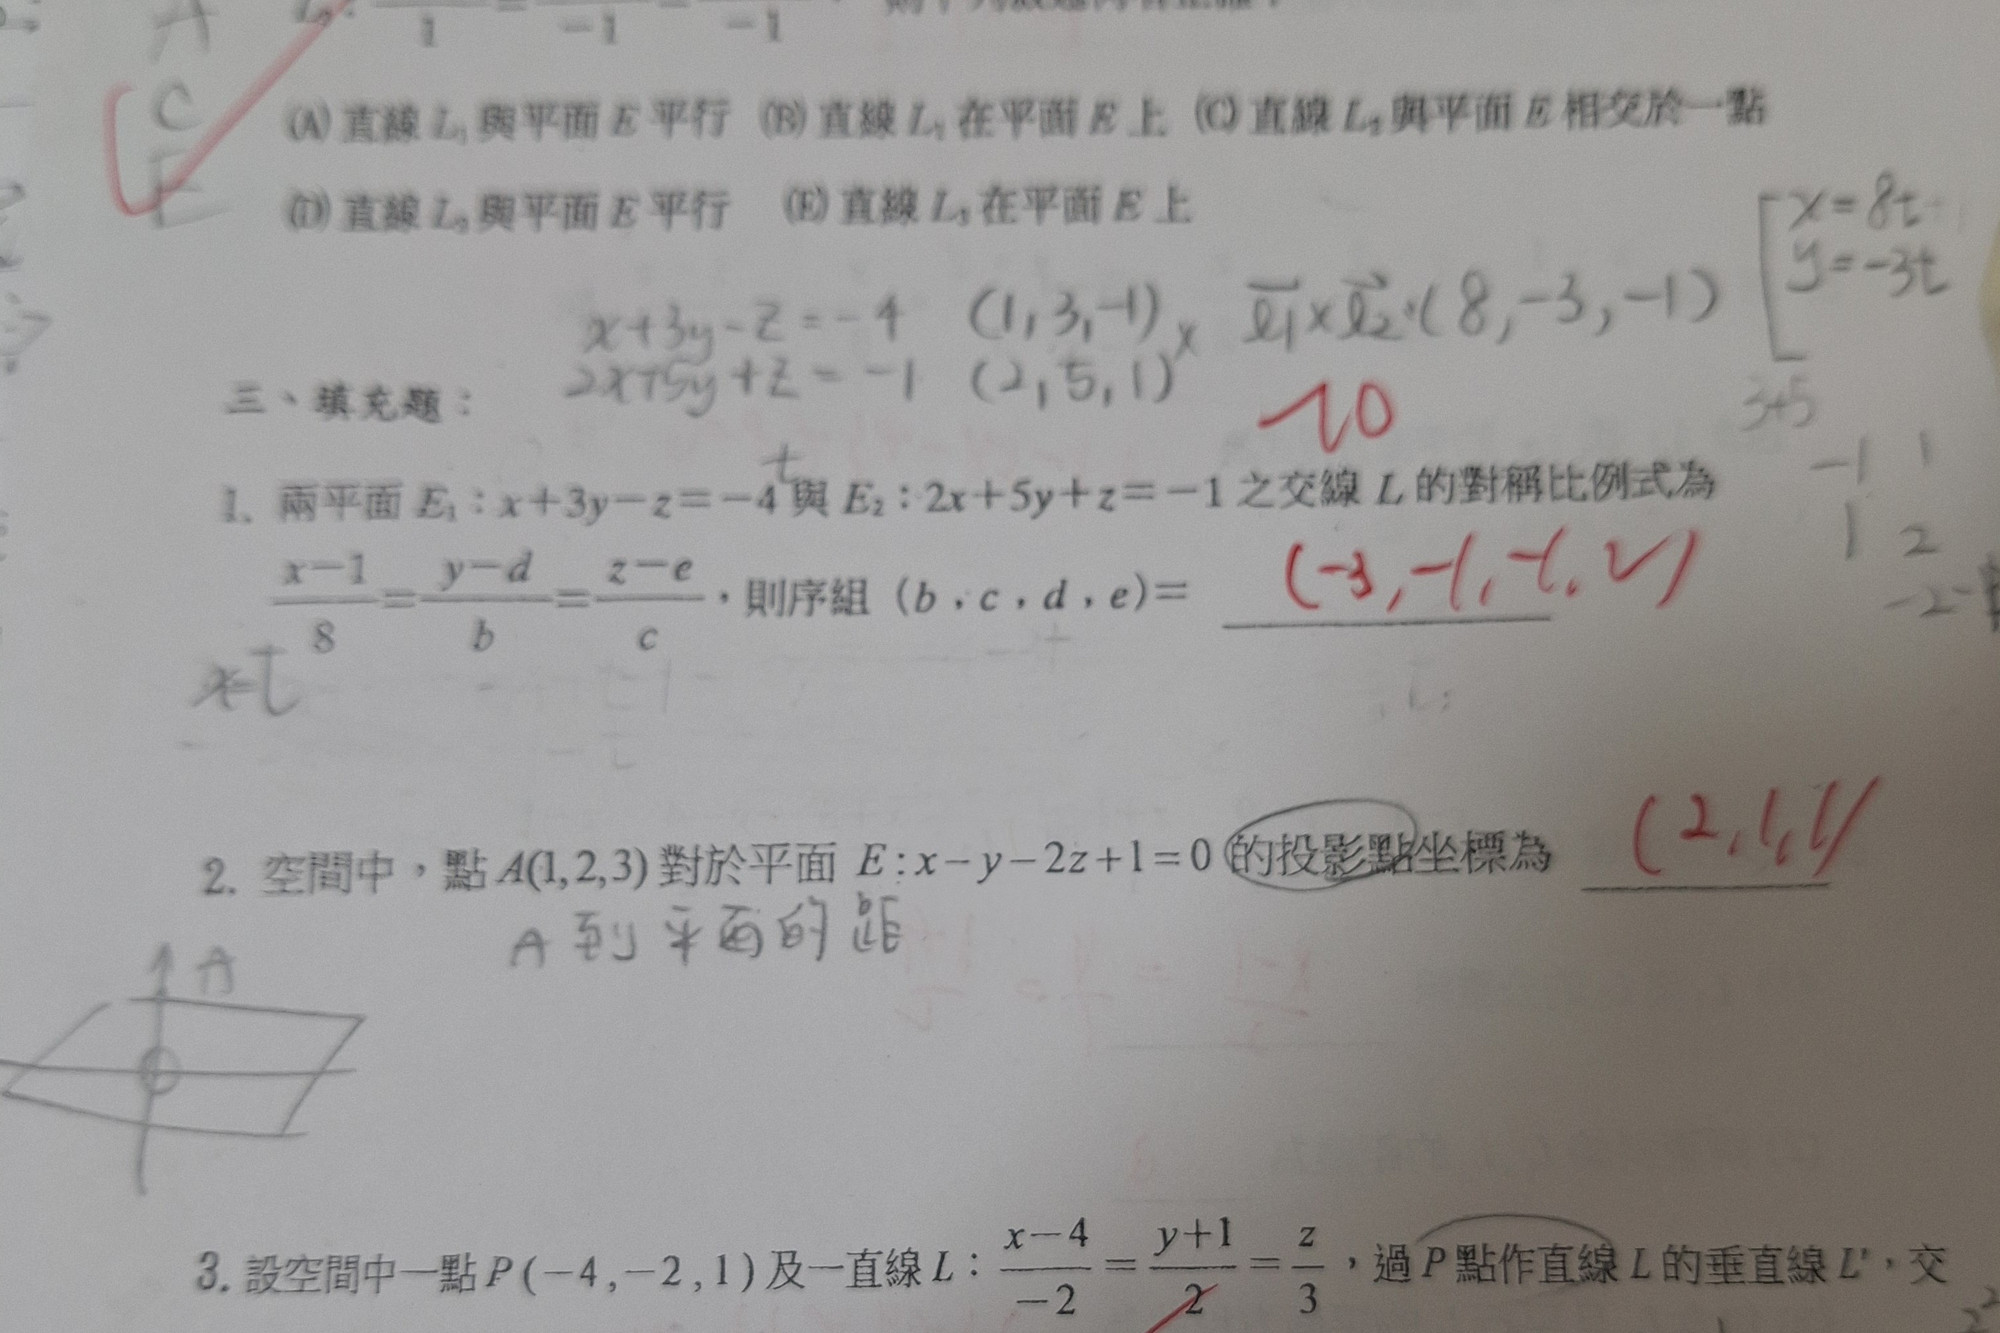 A
1 -1 -1
C
(A) 直線 L₁ 與平面 E 平行 (B) 直線 L₁ 在平面 E 上 (C) 直線 L₂ 與平面 E 相交於一點
E
(D) 直線 L₂ 與平面 E 平行 (E) 直線 L₃ 在平面 E 上
x=8t
y=-3t
x+3y-z=-4 (1,3,-1) x ℓ₁×ℓ₂ (8,-3,-1)
2x+5y+z=-1 (2,5,1)
3+5
三、填充題：
10
-1 1
t
1. 兩平面 E₁：x+3y-z=-4 與 E₂：2x+5y+z=-1 之交線 L 的對稱比例式為
1 2
(x-1)/8=(y-d)/b=(z-e)/c，則序組 (b，c，d，e)= (-3,-1,-1,2)
x=t
2. 空間中，點 A(1,2,3) 對於平面 E:x-y-2z+1=0 的投影點坐標為 (2,1,1)
A 到平面的距
A
3. 設空間中一點 P(-4,-2,1) 及一直線 L：(x-4)/-2=(y+1)/2=z/3，過 P 點作直線 L 的垂直線 L'，交